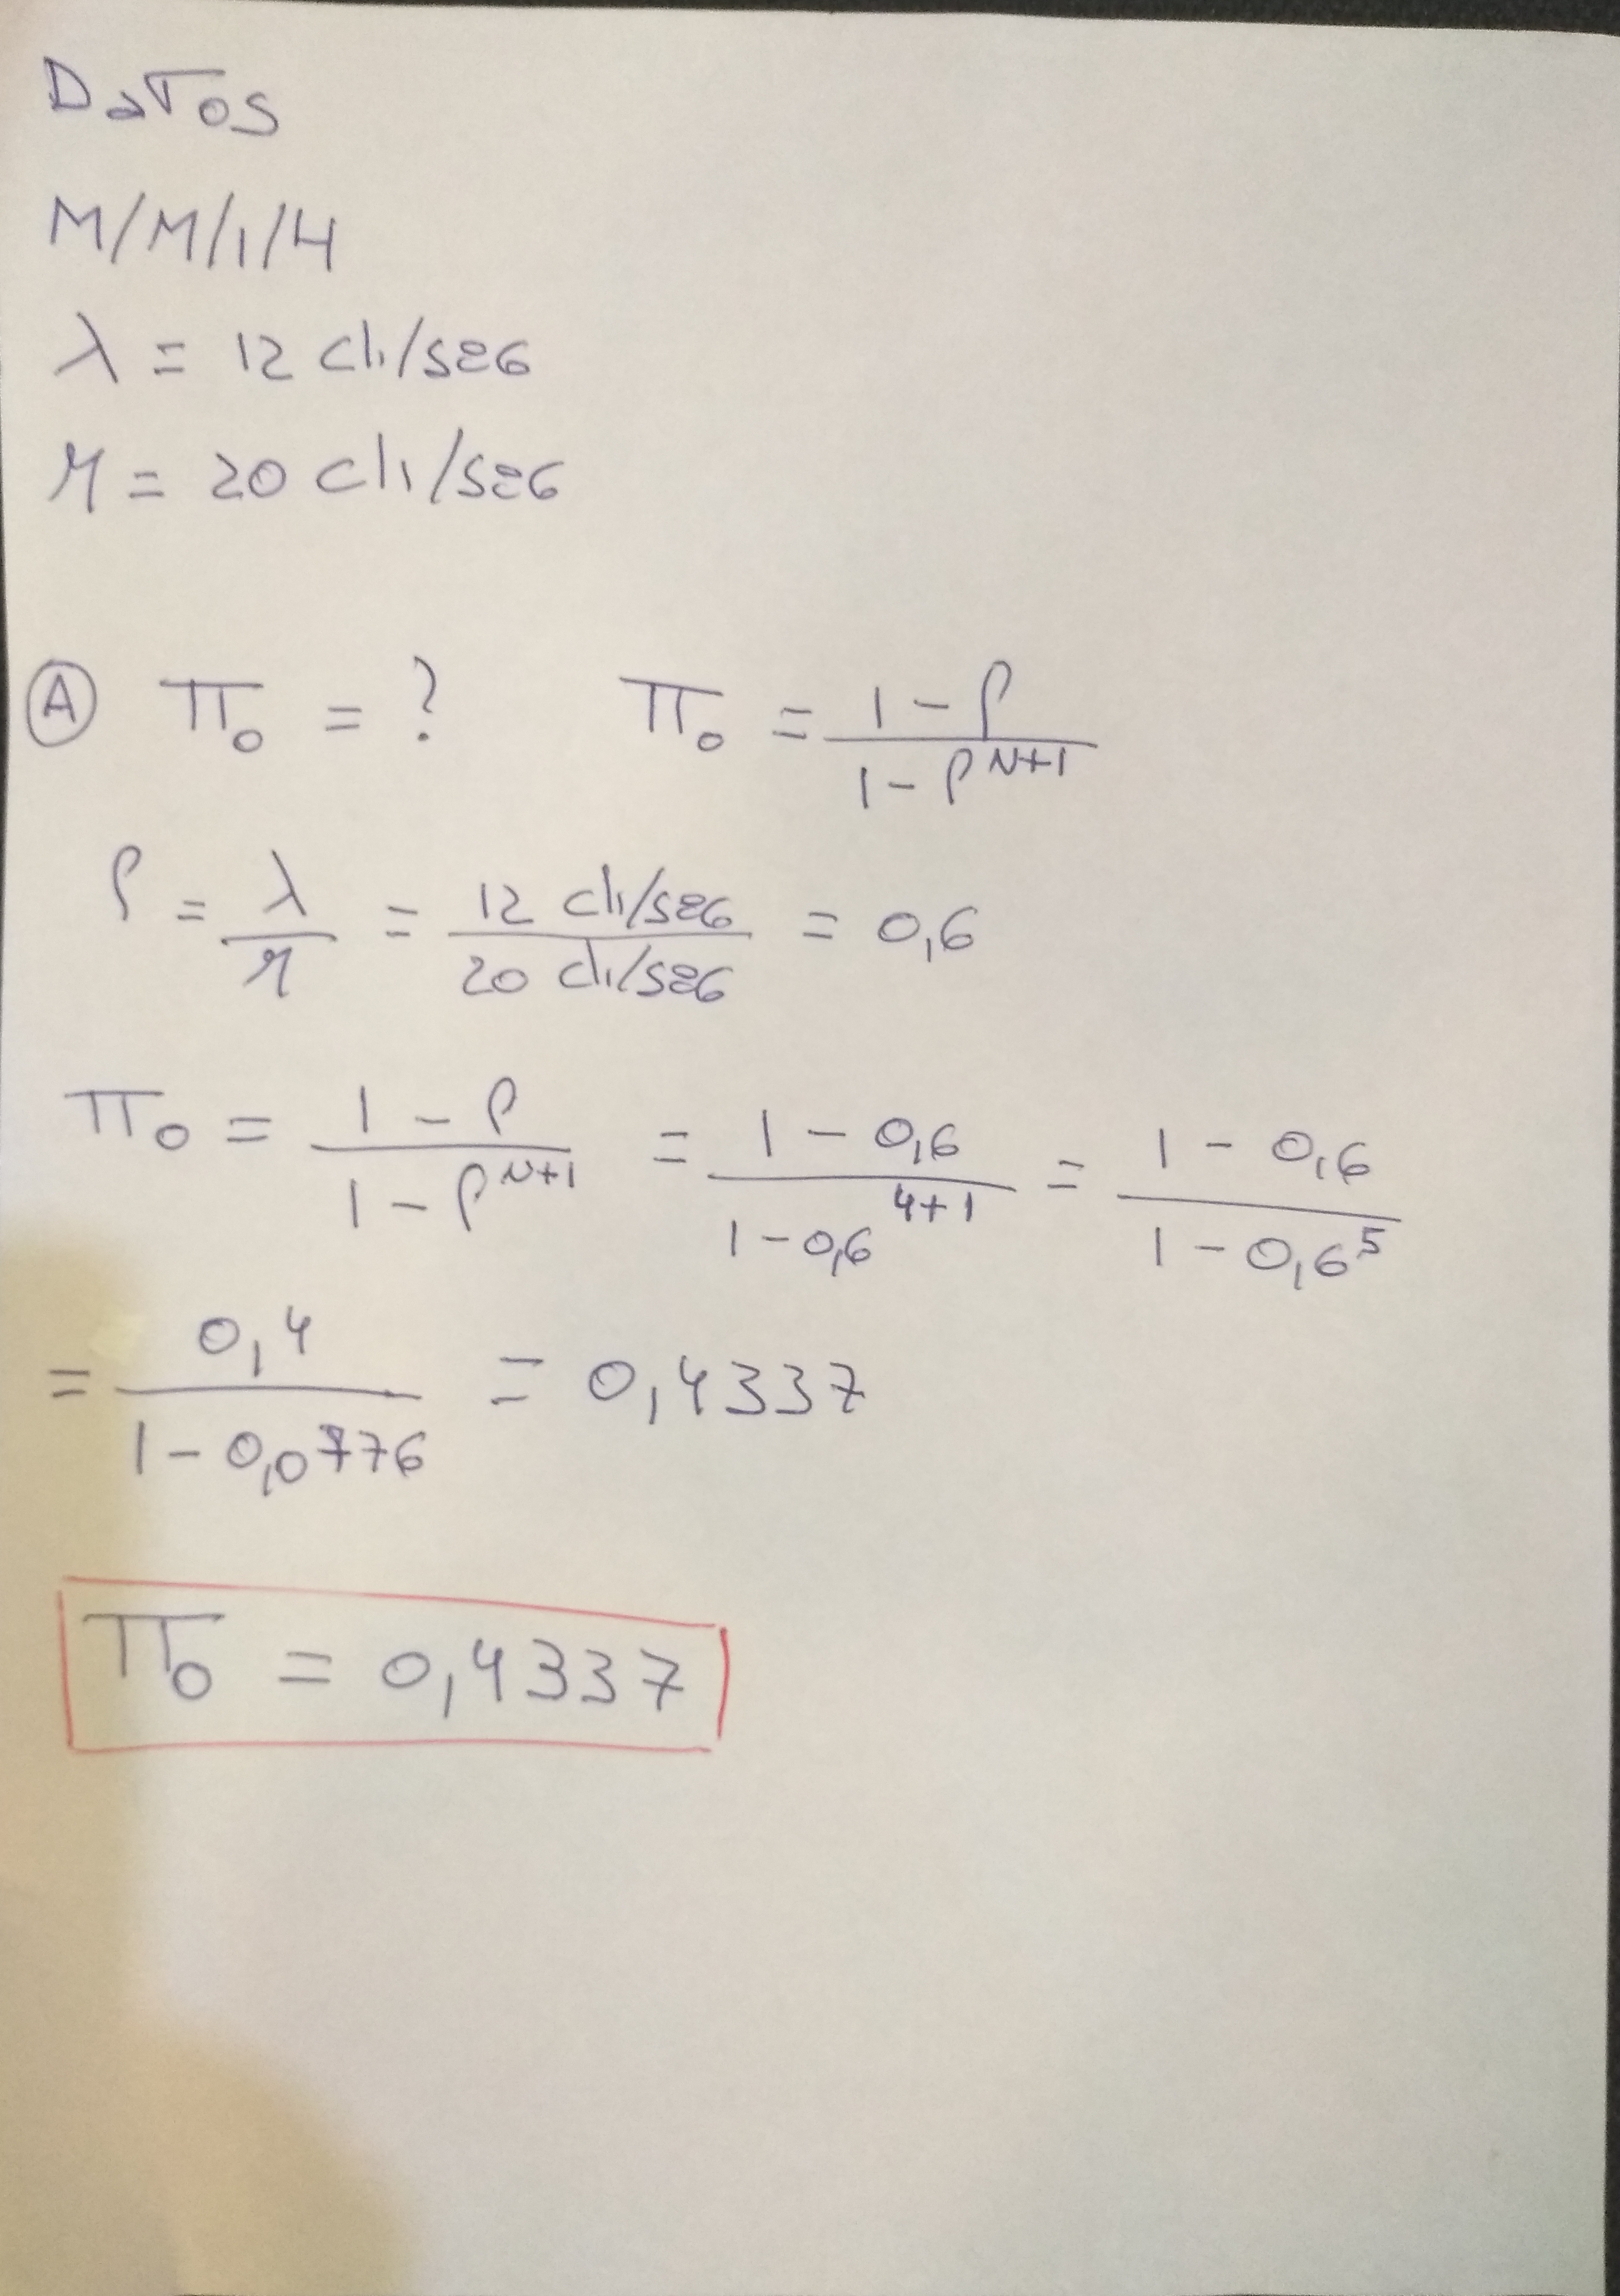 Datos
M/M/1/4
λ = 12 cli/seg
μ = 20 cli/seg
Ⓐ π₀ = ? π₀ = (1 - ρ) / (1 - ρ^(N+1))
ρ = λ/μ = (12 cli/seg) / (20 cli/seg) = 0,6
π₀ = (1 - ρ) / (1 - ρ^(N+1)) = (1 - 0,6) / (1 - 0,6^(4+1)) = (1 - 0,6) / (1 - 0,6^5)
= 0,4 / (1 - 0,0776) = 0,4337
π₀ = 0,4337